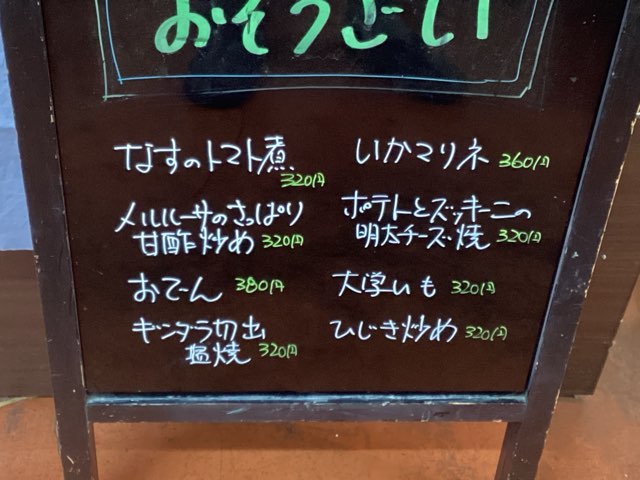 おそうざい
なすのトマト煮
320円
メルルーサのさっぱり
甘酢炒め 320円
おでん 380円
ギンダラ切出
塩焼 320円
いかマリネ 360円
ポテトとズッキーニの
明太チーズ焼 320円
大学いも 320円
ひじき炒め 320円